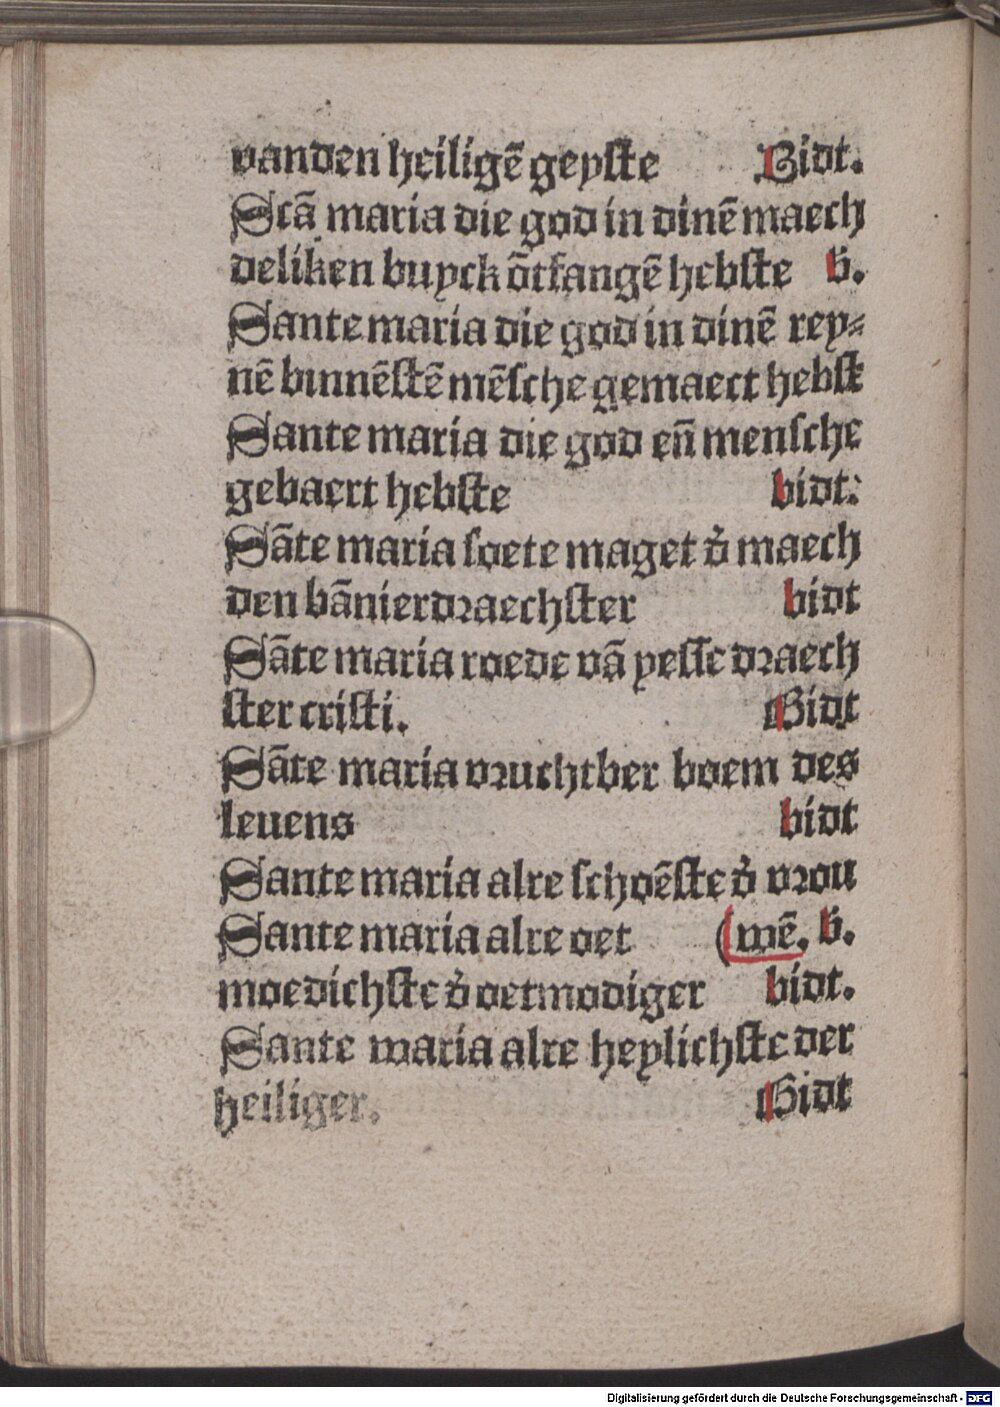 vanden heiligē geyste Bidt.
Scā maria die god in dinē maech
deliken buyck ōtfangē hebste b̄.
Sante maria die god in dinē rey⸗
nē binnēstē mēsche gemaect hebst
Sante maria die god eñ mensche
gebaert hebste bidt:
Sāte maria soete maget d̄ maech
den bānierdraechster bidt
Sāte maria roede vā yesse draech
ster cristi. Bidt
Sāte maria vruchtber boem des
leuens bidt
Sante maria alre schoēste d̄ vrou
Sante maria alre oet (wē. b̄.
moedichste d̄ oetmodiger bidt.
Sante maria alre heylichste der
heiliger. Bidt
Digitalisierung gefördert durch die Deutsche Forschungsgemeinschaft - DFG